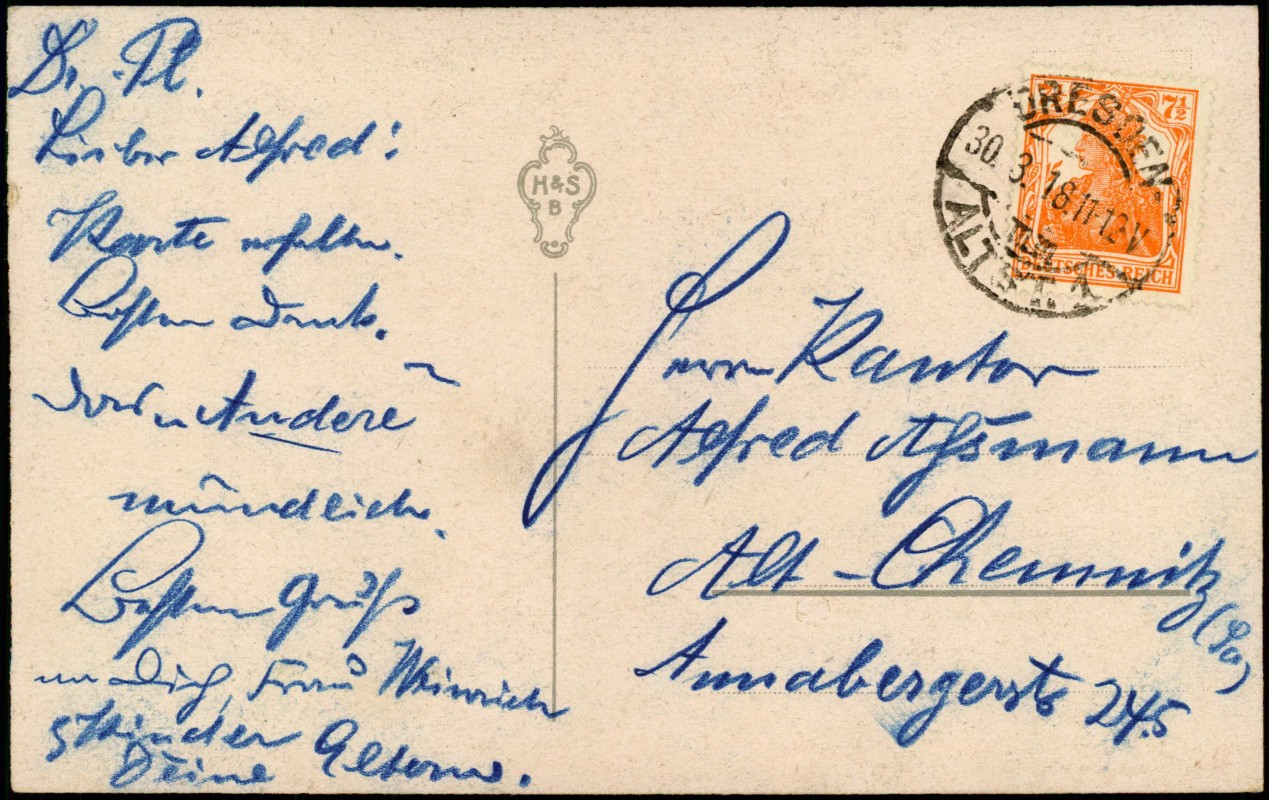 Dr. Pl.
Lieber Alfred!
Karte erhalten.
Besten Dank.
Das Andere
mündlich.
Besten Gruß
an Dich, Frau
Kinder Deine Eltern.
H & S
B
DRESDEN
30. 3. 18. 11-12 V
ALTST. 1
7½
DEUTSCHES REICH
Herrn Kantor
Alfred Aßmann
Alt-Chemnitz
(Sa)
Annabergerstr 245